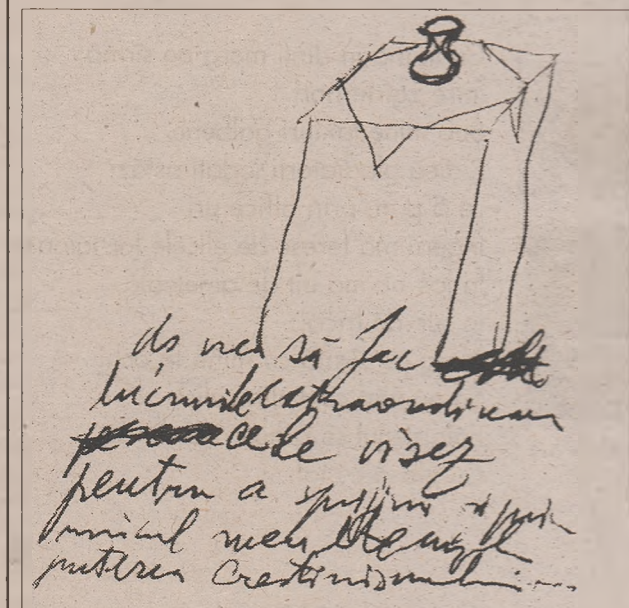 aș vrea să fac
lucrurile extraordinare
ce le visez
pentru a sprijini și prin
meu
puterea creștinismului...